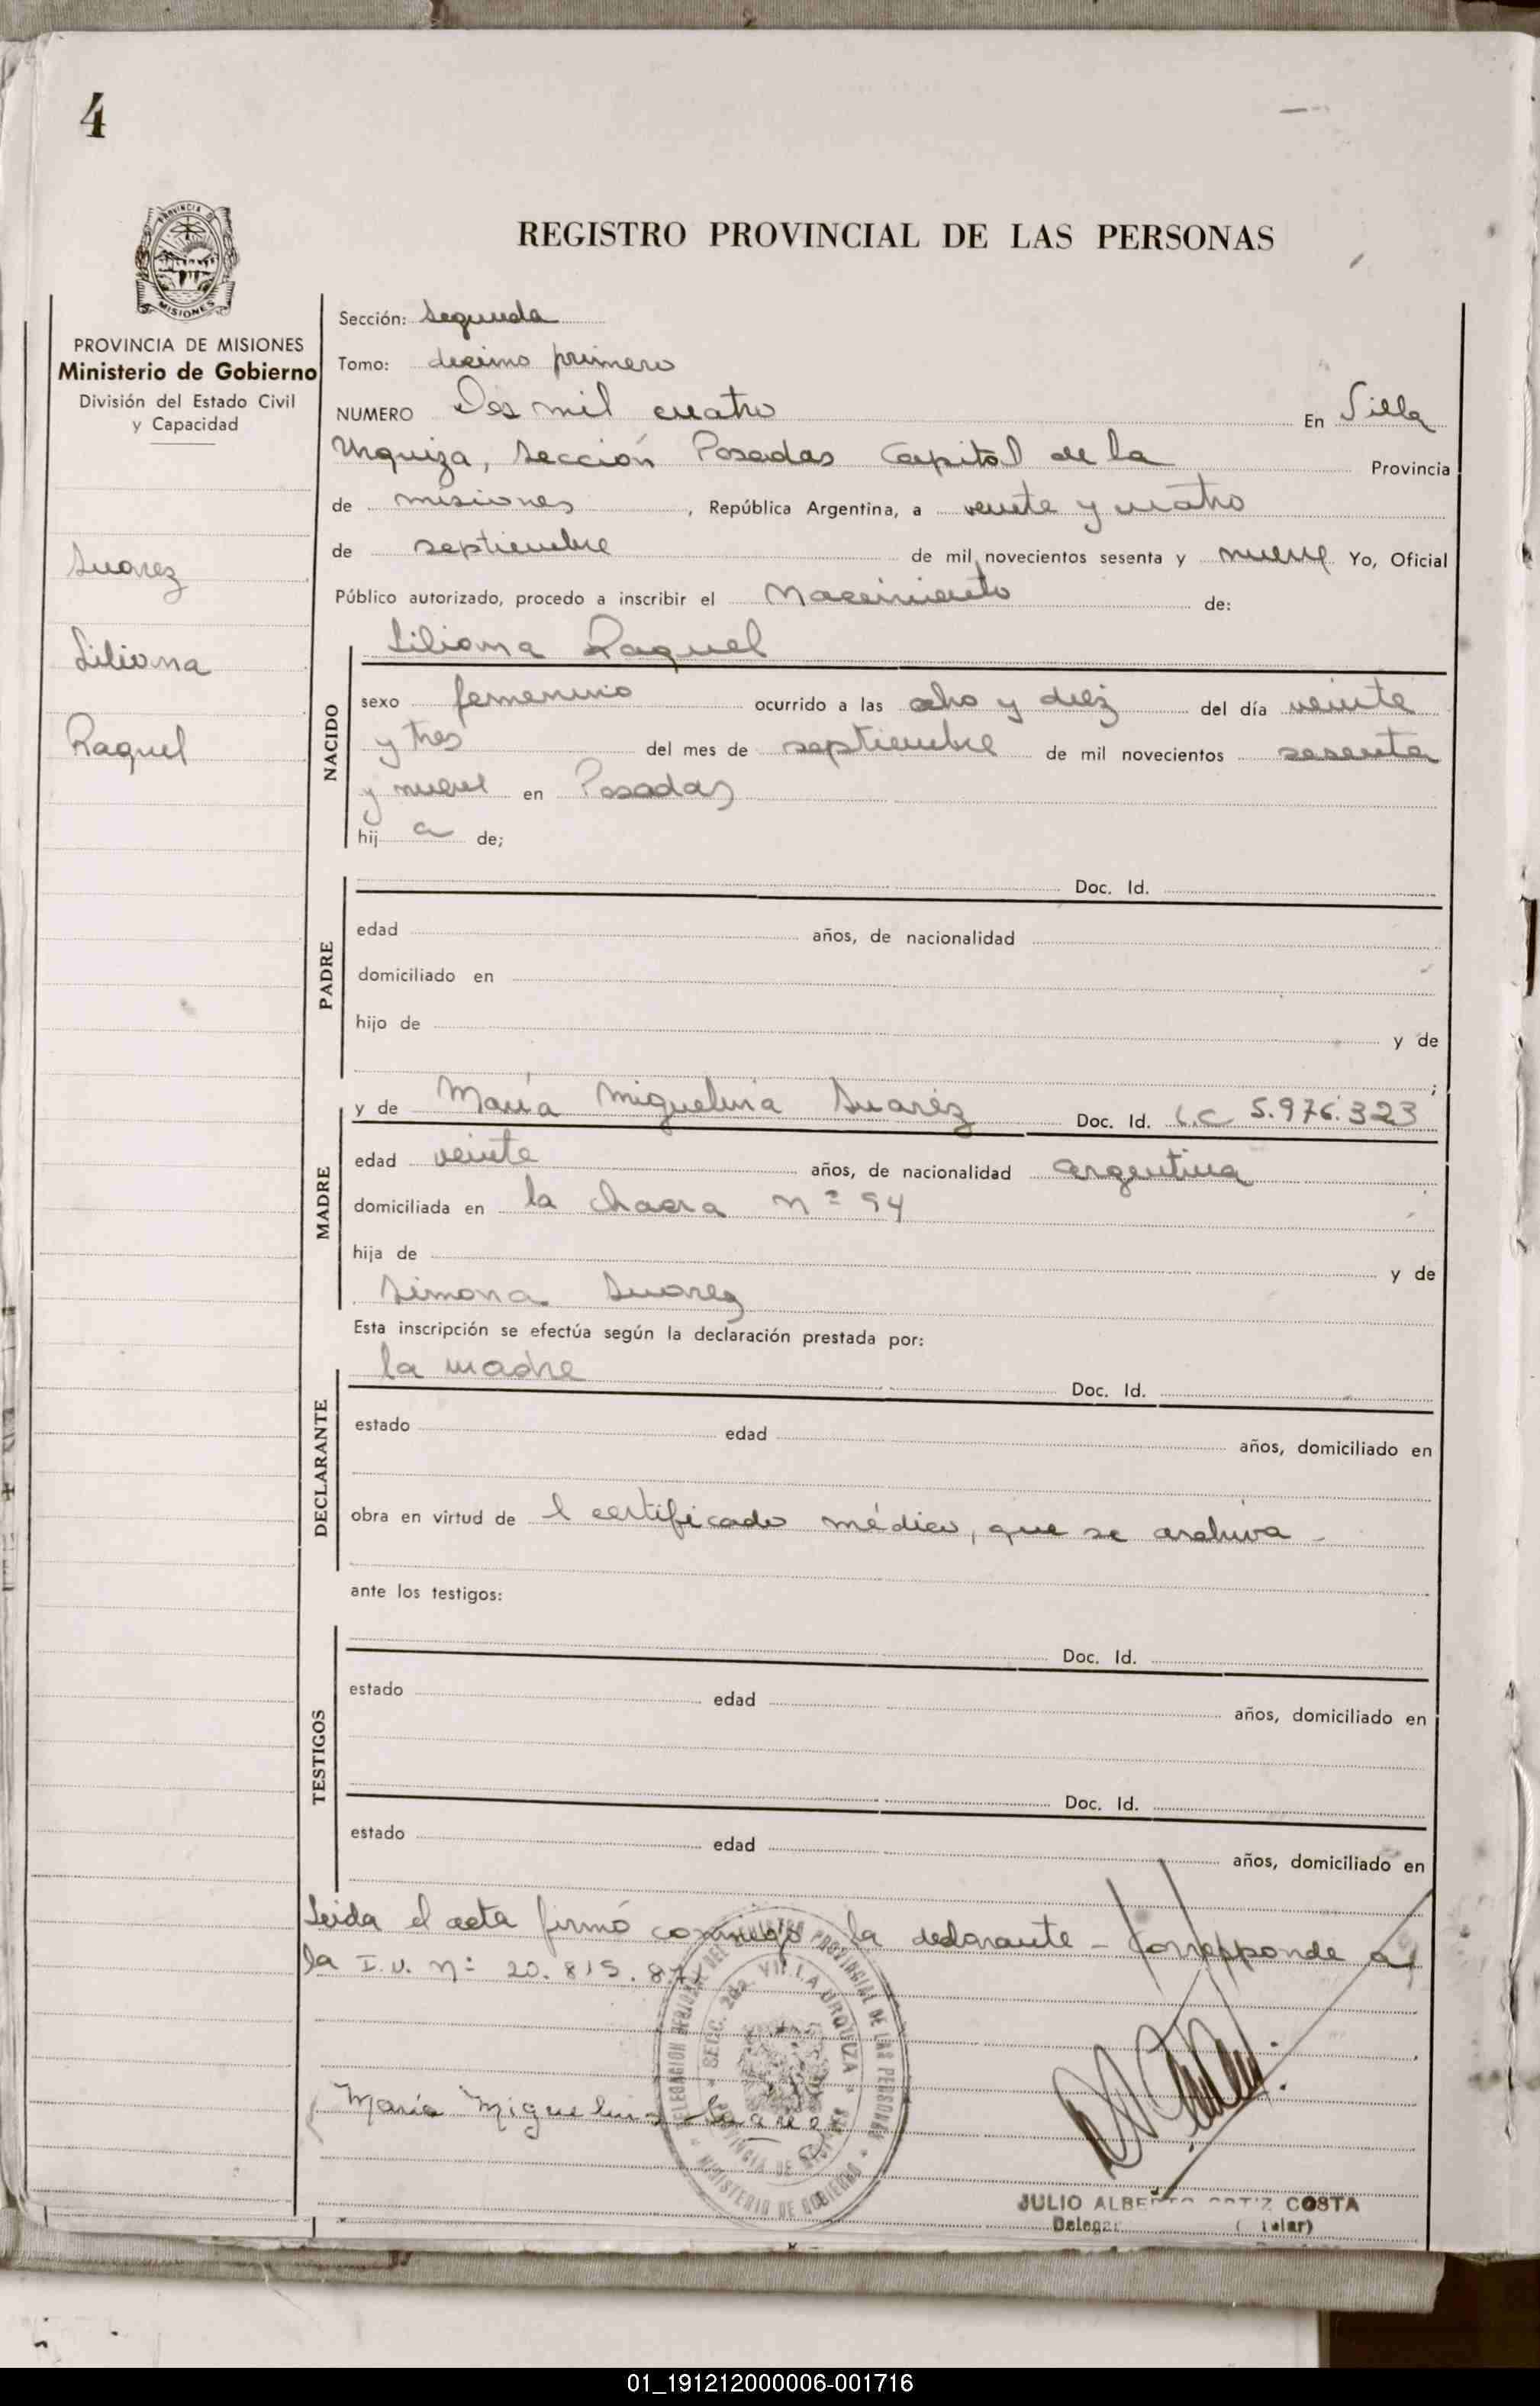 4
PROVINCIA DE
MISIONES
REGISTRO PROVINCIAL DE LAS PERSONAS
PROVINCIA DE MISIONES
Ministerio de Gobierno
División del Estado Civil
y Capacidad
Suarez
Liliana
Raquel
Sección: Segunda
Tomo: decimo primero
NUMERO Dos mil cuatro En Villa
Urquiza, Sección Posadas Capital de la Provincia
de misiones, República Argentina, a veinte y cuatro
de septiembre de mil novecientos sesenta y nueve Yo, Oficial
Público autorizado, procedo a inscribir el Nacimiento de:
Liliana Raquel
NACIDO
sexo femenino ocurrido a las ocho y diez del día veinte
y tres del mes de septiembre de mil novecientos sesenta
y nueve en Posadas
hij a de;
PADRE
Doc. Id.
edad años, de nacionalidad
domiciliado en
hijo de y de
;
MADRE
y de María Miguelina Suaréz Doc. Id. L.C 5.976.323
edad veinte años, de nacionalidad argentina
domiciliada en la chacra nº 94
hija de y de
Simona Suarez
Esta inscripción se efectúa según la declaración prestada por:
DECLARANTE
la madre Doc. Id.
estado edad años, domiciliado en
obra en virtud de l certificado médico, que se archiva -
ante los testigos:
TESTIGOS
Doc. Id.
estado edad años, domiciliado en
Doc. Id.
estado edad años, domiciliado en
Leida el acta firmó conmigo la declarante - Corresponde a
la I.U. n: 20.815.8
DELEGACION REGIONAL DEL REGISTRO PROVINCIAL DE LAS PERSONAS
SECC. 2da. VILLA URQUIZA
PROVINCIA DE MISIONES
MINISTERIO DE GOBIERNO
María Miguelina Suarez
JULIO ALBERTO ORTIZ COSTA
01_191212000006-001716